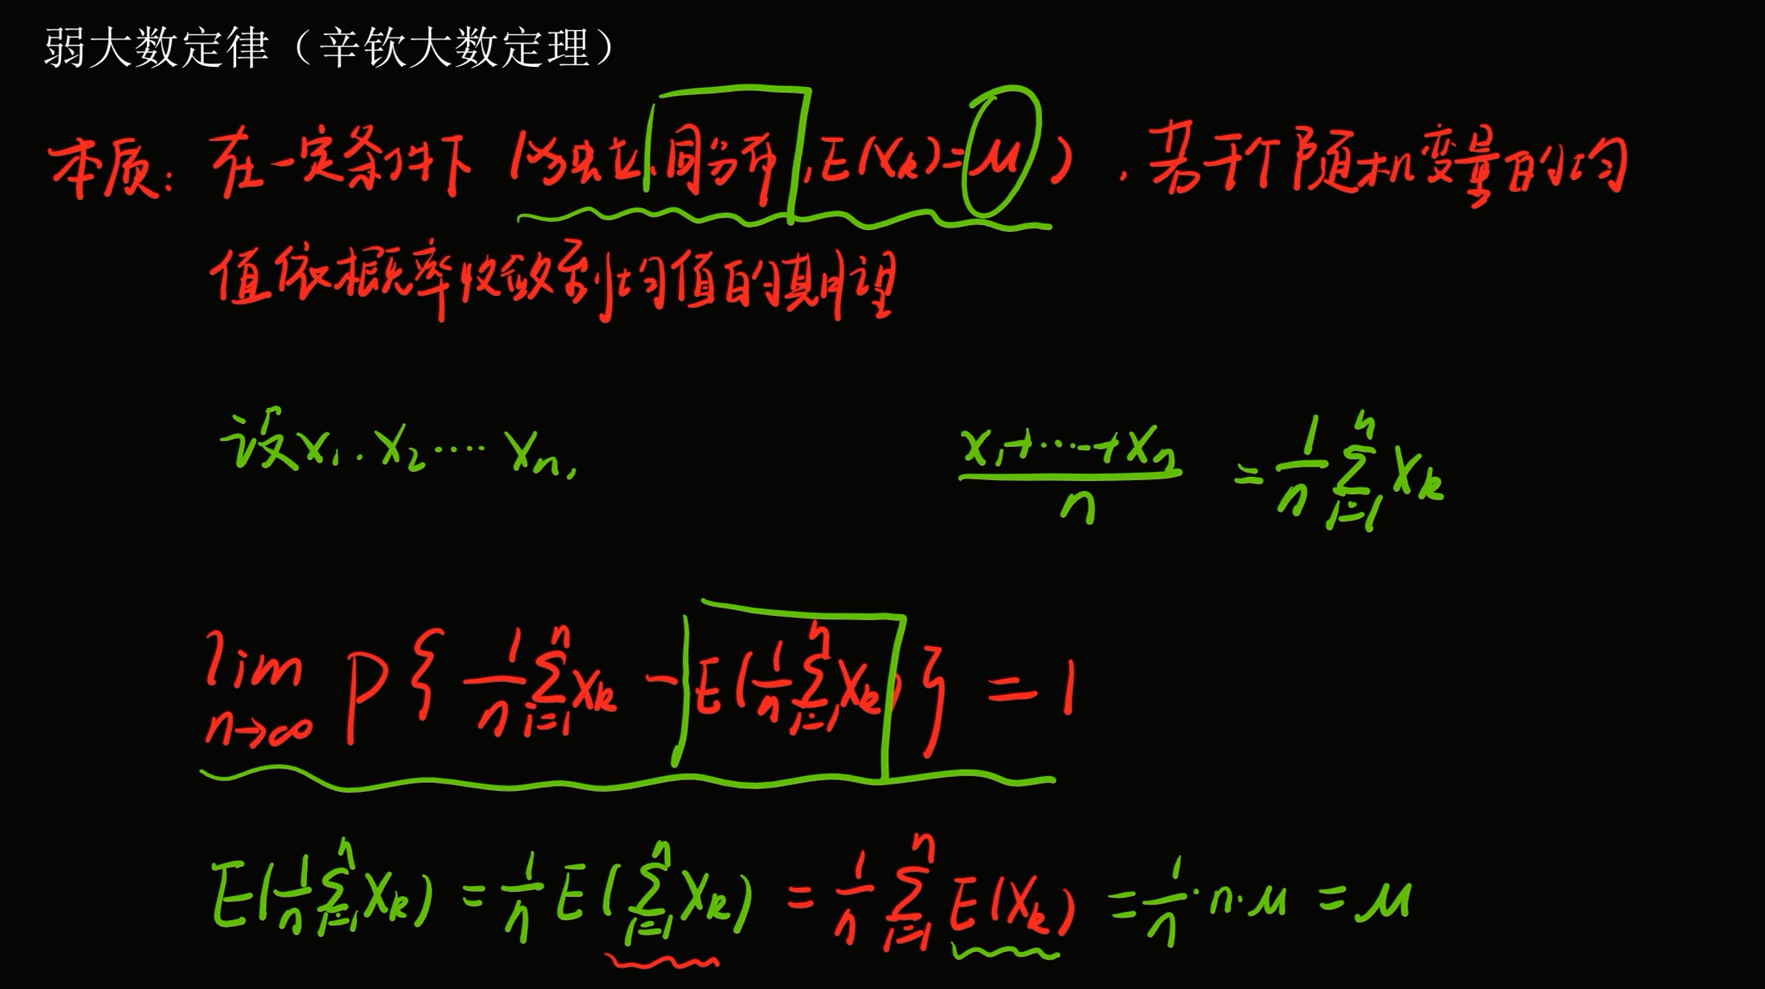 弱大数定律（辛钦大数定理）
本质：在一定条件下（为独立、同分布，E(Xk)=μ），若干个随机变量的均
值依概率收敛到均值的期望
设X1. X2 ···· Xn,
(X1+···+Xn)/n = 1/n ∑_{i=1}^{n} Xk
lim_{n→∞} P{ 1/n ∑_{i=1}^{n} Xk − E(1/n ∑_{i=1}^{n} Xk) } = 1
E(1/n ∑_{i=1}^{n} Xk) = 1/n E(∑_{i=1}^{n} Xk) = 1/n ∑_{i=1}^{n} E(Xk) = 1/n · n · μ = μ